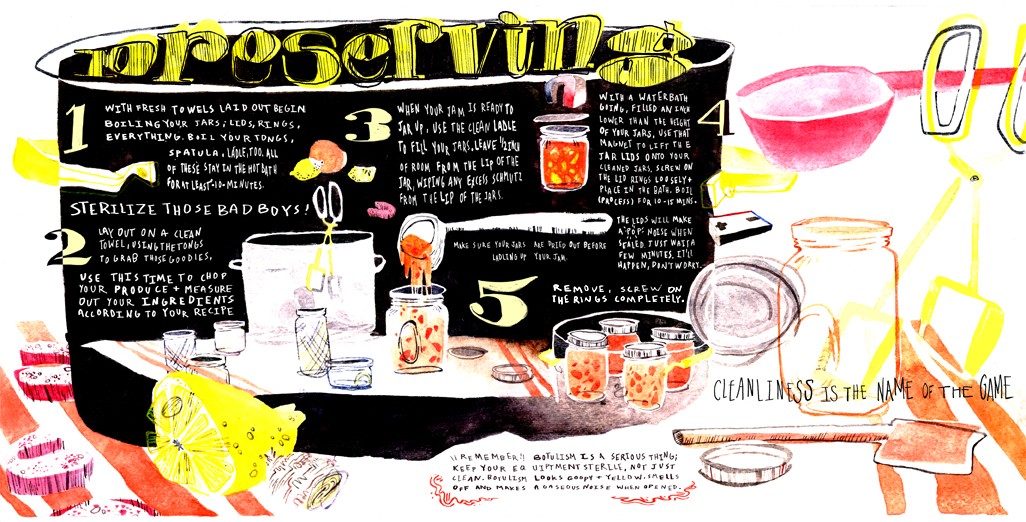 preserving
1
WITH FRESH TOWELS LAID OUT BEGIN
BOILING YOUR JARS, LIDS, RINGS,
EVERYTHING. BOIL YOUR TONGS,
SPATULA, LADLE, TOO. ALL
OF THESE STAY IN THE HOT BATH
FOR AT LEAST 10 MINUTES.
STERILIZE THOSE BAD BOYS!
2
LAY OUT ON A CLEAN
TOWEL, USING THE TONGS
TO GRAB THOSE GOODIES.
USE THIS TIME TO CHOP
YOUR PRODUCE + MEASURE
OUT YOUR INGREDIENTS
ACCORDING TO YOUR RECIPE
3
WHEN YOUR JAM IS READY TO
JAR UP, USE THE CLEAN LADLE
TO FILL YOUR JARS. LEAVE 1/2 INCH
OF ROOM FROM THE LIP OF THE
JAR, WIPING ANY EXCESS SCHMUTZ
FROM THE LIP OF THE JARS.
MAKE SURE YOUR JARS ARE DRIED OUT BEFORE
LADLING UP YOUR JAM.
4
WITH A WATERBATH
GOING, FILLED AN INCH
LOWER THAN THE HEIGHT
OF YOUR JARS, USE THAT
MAGNET TO LIFT THE
JAR LIDS ONTO YOUR
CLEANED JARS. SCREW ON
THE LID RINGS LOOSELY +
PLACE IN THE BATH. BOIL
(PROCESS) FOR 10-15 MINS.
THE LIDS WILL MAKE
A "POP" NOISE WHEN
SEALED. JUST WAIT A
FEW MINUTES, IT'LL
HAPPEN, DON'T WORRY.
5
REMOVE, SCREW ON
THE RINGS COMPLETELY.
CLEANLINESS IS THE NAME OF THE GAME
!!REMEMBER!! BOTULISM IS A SERIOUS THING;
KEEP YOUR EQUIPTMENT STERILE, NOT JUST
CLEAN. BOTULISM LOOKS GOOPY + YELLOW. SMELLS
OFF AND MAKES A GASEOUS NOISE WHEN OPENED.